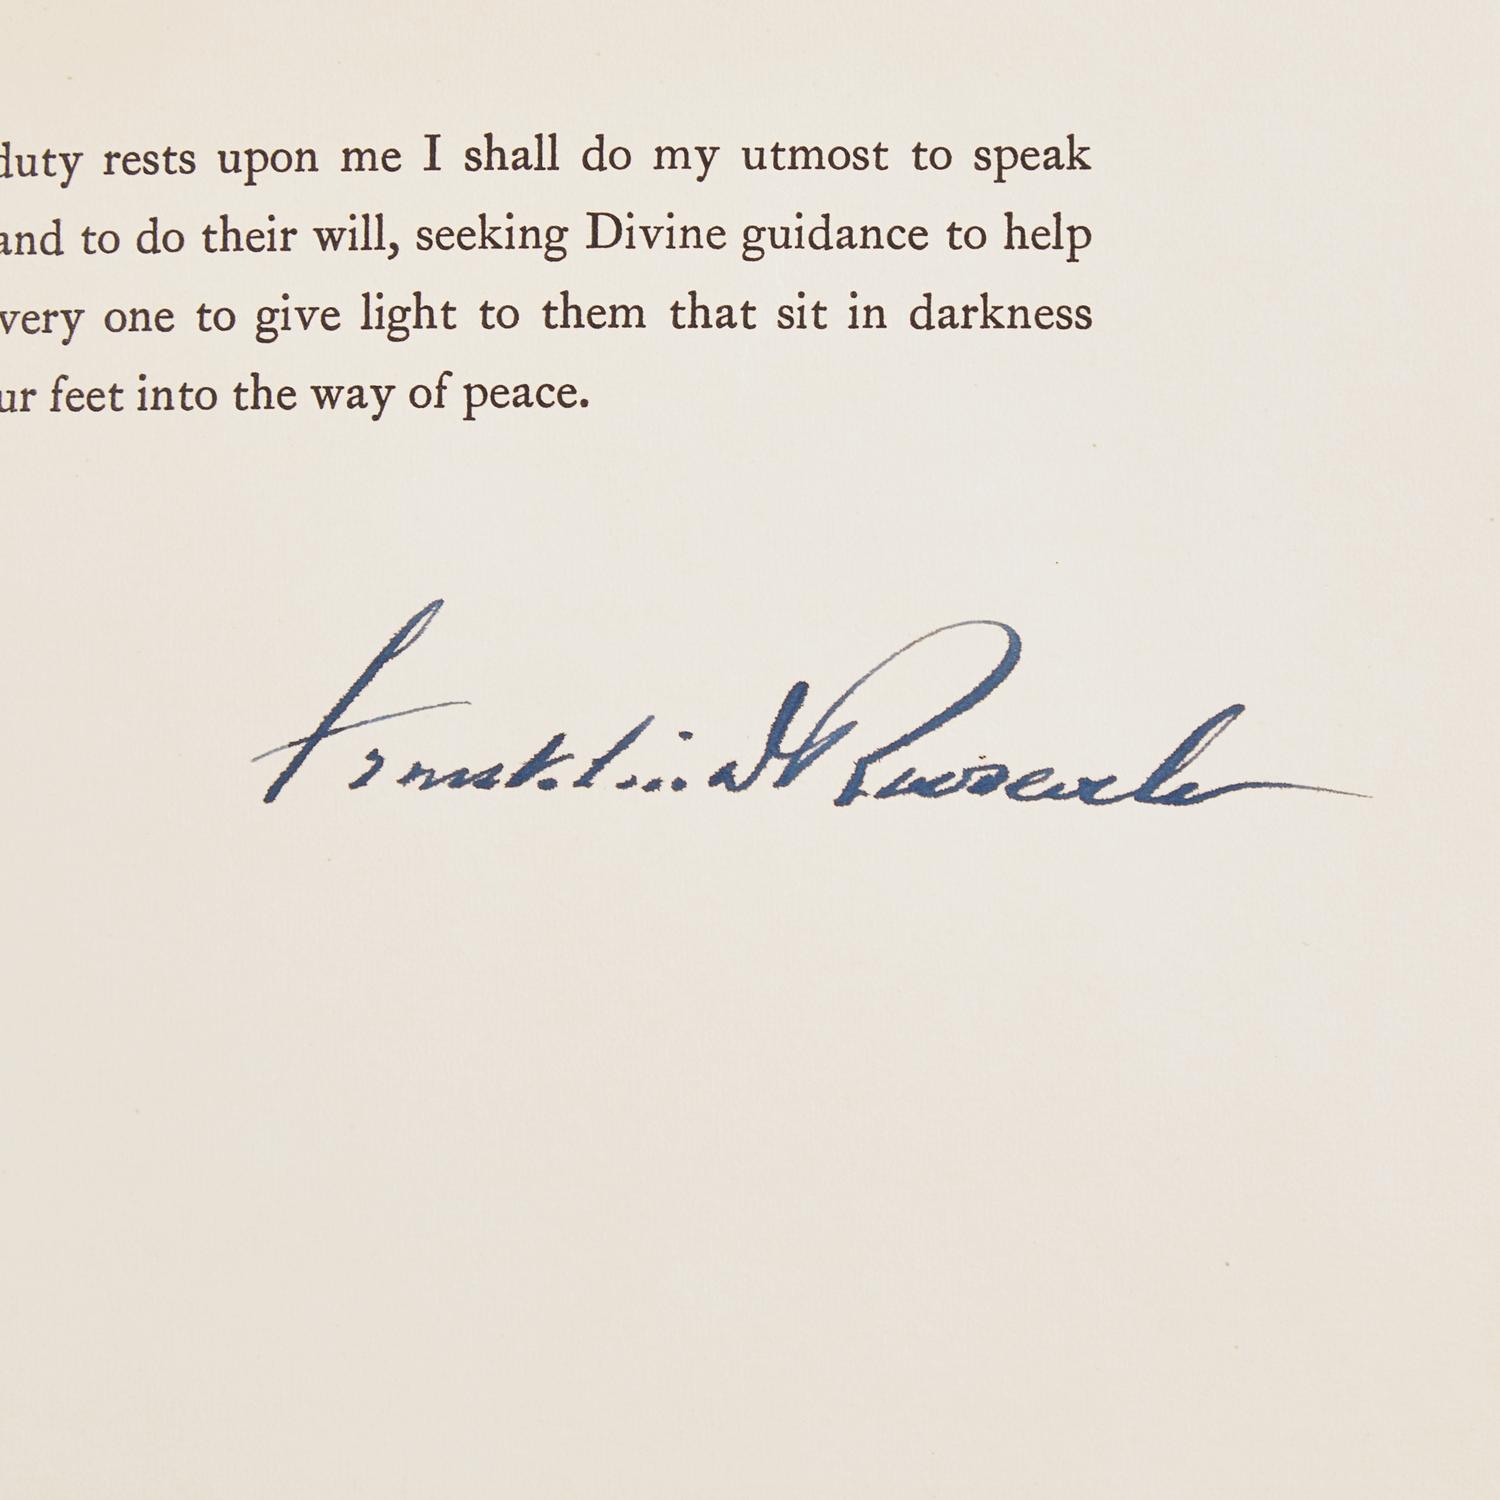 duty rests upon me I shall do my utmost to speak
and to do their will, seeking Divine guidance to help
very one to give light to them that sit in darkness
ur feet into the way of peace.
Franklin D Roosevelt